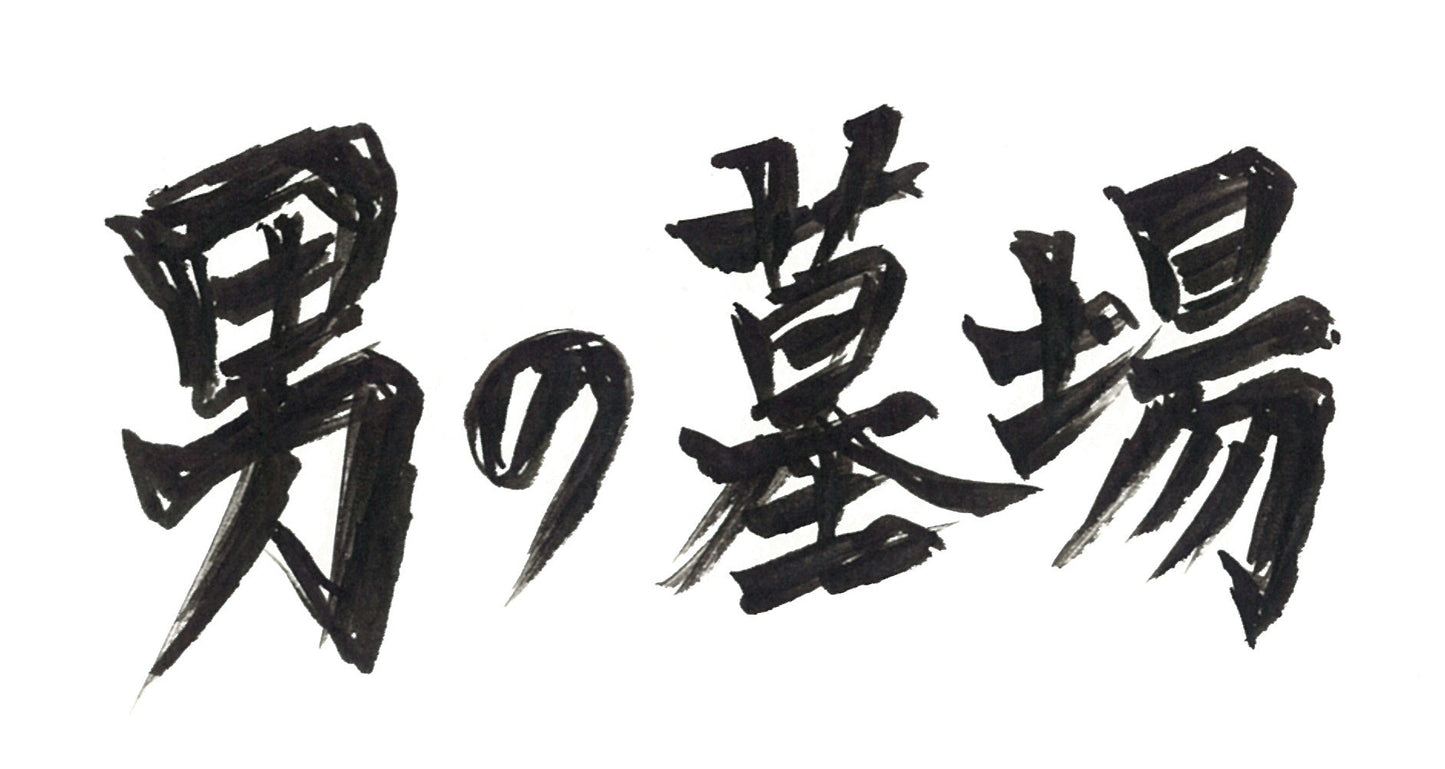 男の墓場